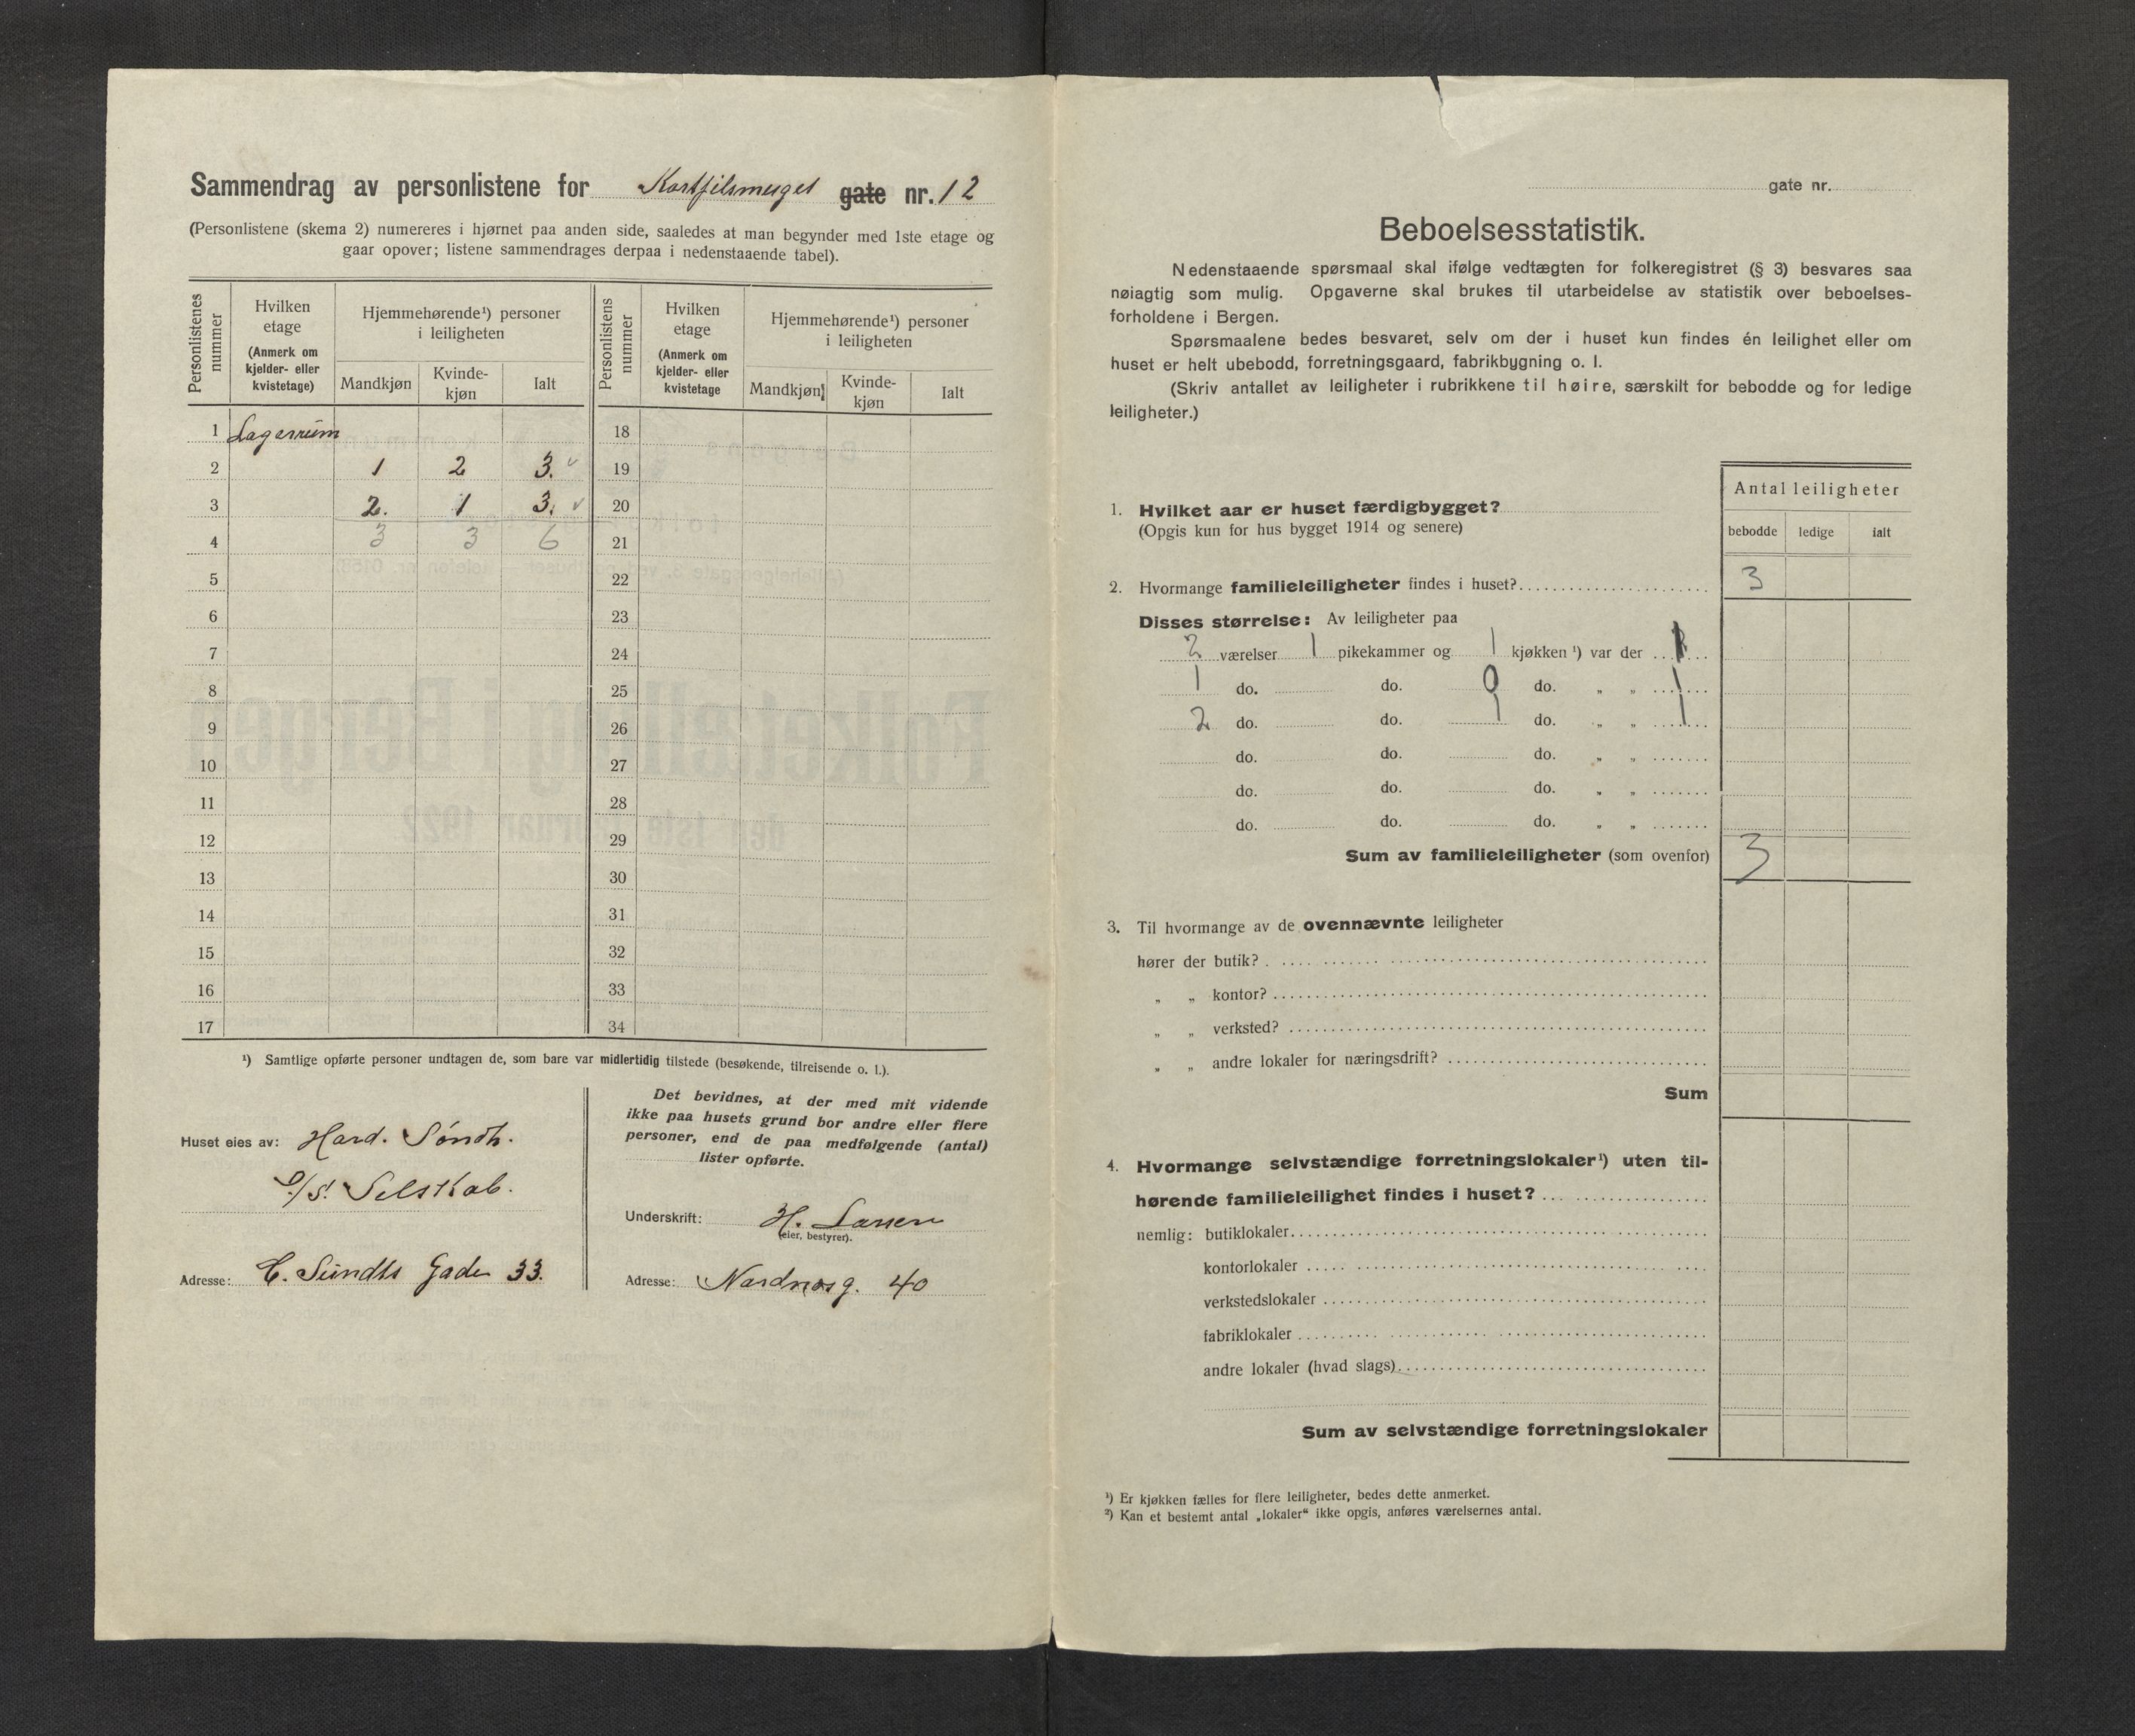 Sammendrag av personlistene for Kortfilsmuget gate nr. 12
(Personlistene (skema 2) numereres i hjørnet paa anden side, saaledes at man begynder med 1ste etage og
gaar opover; listene sammendrages derpaa i nedenstaaende tabel).
Personlistenes nummer | Hvilken etage (Anmerk om kjelder- eller kvistetage) | Hjemmehørende¹) personer i leiligheten | Mandkjøn | Kvinde-kjøn | Ialt
Personlistens nummer | Hvilken etage (Anmerk om kjelder- eller kvistetage | Hjemmehørende¹) personer i leiligheten | Mandkjøn | Kvinde-kjøn | Ialt
1 Lagerrum 18
2 1 2 3. 19
3 2. 1 3. 20
4 3 3 6 21
5 22
6 23
7 24
8 25
9 26
10 27
11 28
12 29
13 30
14 31
15 32
16 33
17 34
¹) Samtlige opførte personer undtagen de, som bare var midlertidig tilstede (besøkende, tilreisende o. l.).
Huset eies av: Hard. Søndh.
D/S. Selskab.
Adresse: C. Sundts Gade 33.
Det bevidnes, at der med mit vidende
ikke paa husets grund bor andre eller flere
personer, end de paa medfølgende (antal)
lister opførte.
Underskrift: H. Larsen
(eier, bestyrer).
Adresse: Nordnæsg. 40
gate nr.
Beboelsesstatistik.
Nedenstaaende spørsmaal skal ifølge vedtægten for folkeregistret (§ 3) besvares saa
nøiagtig som mulig. Opgaverne skal brukes til utarbeidelse av statistik over beboelses-
forholdene i Bergen.
Spørsmaalene bedes besvaret, selv om der i huset kun findes én leilighet eller om
huset er helt ubebodd, forretningsgaard, fabrikbygning o. l.
(Skriv antallet av leiligheter i rubrikkene til høire, særskilt for bebodde og for ledige
leiligheter.)
Antal leiligheter
bebodde ledige ialt
1. Hvilket aar er huset færdigbygget?
(Opgis kun for hus bygget 1914 og senere)
2. Hvormange familieleiligheter findes i huset? 3
Disses størrelse: Av leiligheter paa
2 værelser 1 pikekammer og 1 kjøkken ¹) var der 1
1 do. do. 0 do. „ „ 1
2 do. do. 1 do. „ „ 1
do. do. do. „ „
do. do. do. „ „
do. do. do. „ „
Sum av familieleiligheter (som ovenfor) 3
3. Til hvormange av de ovennævnte leiligheter
hører der butik?
„ „ kontor?
„ „ verksted?
„ „ andre lokaler for næringsdrift?
Sum
4. Hvormange selvstændige forretningslokaler¹) uten til-
hørende familieleilighet findes i huset?
nemlig: butiklokaler
kontorlokaler
verkstedslokaler
fabriklokaler
andre lokaler (hvad slags)
Sum av selvstændige forretningslokaler
¹) Er kjøkken fælles for flere leiligheter, bedes dette anmerket.
²) Kan et bestemt antal „lokaler“ ikke opgis, anføres værelsernes antal.